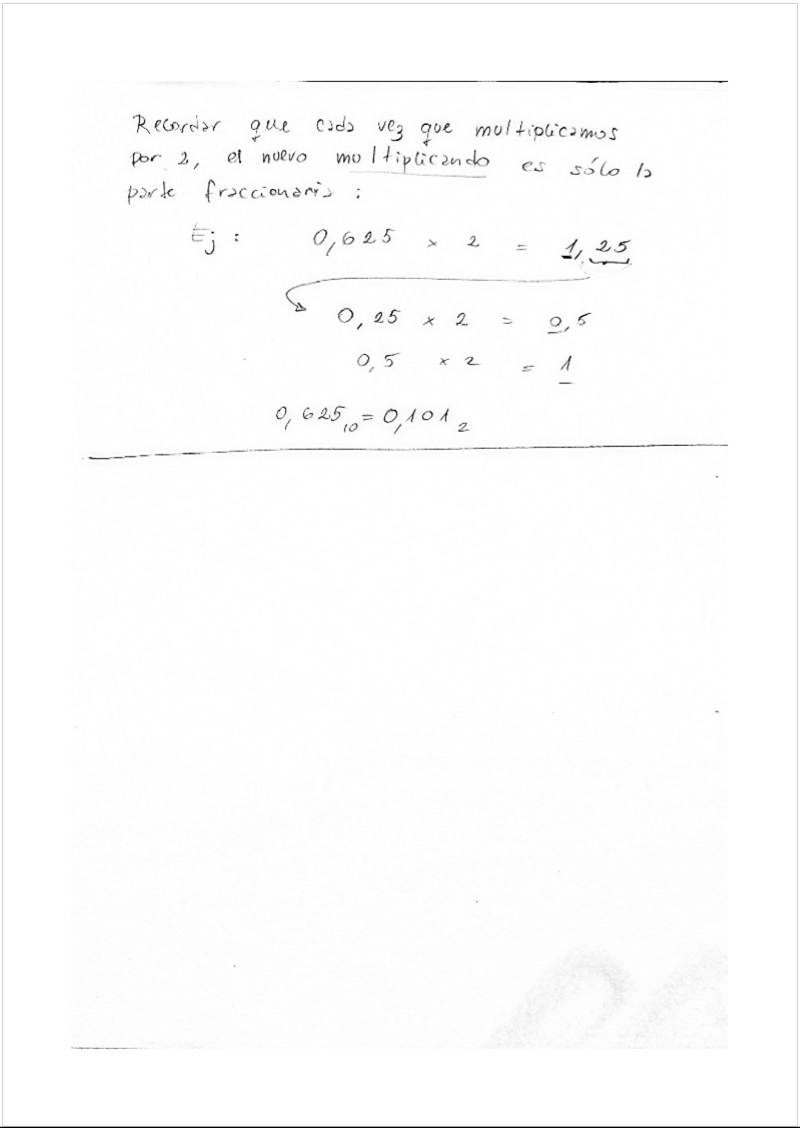 Recordar que cada vez que multiplicamos
por 2, el nuevo multiplicando es sólo la
parte fraccionaria :
Ej : 0,625 × 2 = 1,25
0,25 × 2 = 0,5
0,5 × 2 = 1
0,625₁₀ = 0,101₂